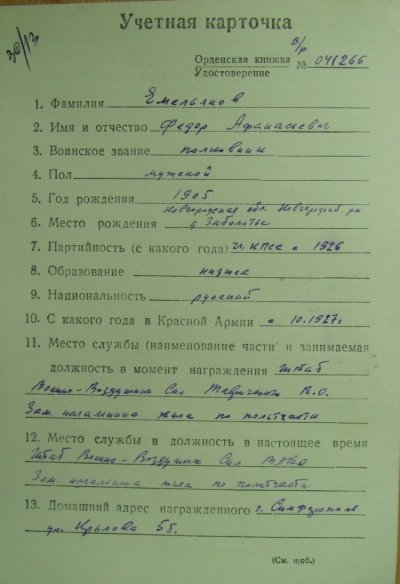 30/13
Учетная карточка
в/р
Орденская книжка № 041266
Удостоверение
1. Фамилия Емельянов
2. Имя и отчество Федор Афанасьевич
3. Воинское звание полковник
4. Пол мужской
5. Год рождения 1905
Новгородская обл. Новгородский рн
6. Место рождения д. Заболотье
7. Партийность (с какого года) чл. КПСС с 1926
8. Образование низшее
9. Национальность русский
10. С какого года в Красной Армии с 10.1927г
11. Место службы (наименование части и занимаемая
должность в момент награждения штаб
Военно-Воздушных Сил Таврического В.О.
Зам. начальника штаба по политчасти
12. Место службы и должность в настоящее время
Штаб Военно-Воздушных Сил ТавВО
Зам. начальника штаба по политчасти
13. Домашний адрес награжденного г. Симферополь
ул. Крылова 5б.
(См. н/об.)